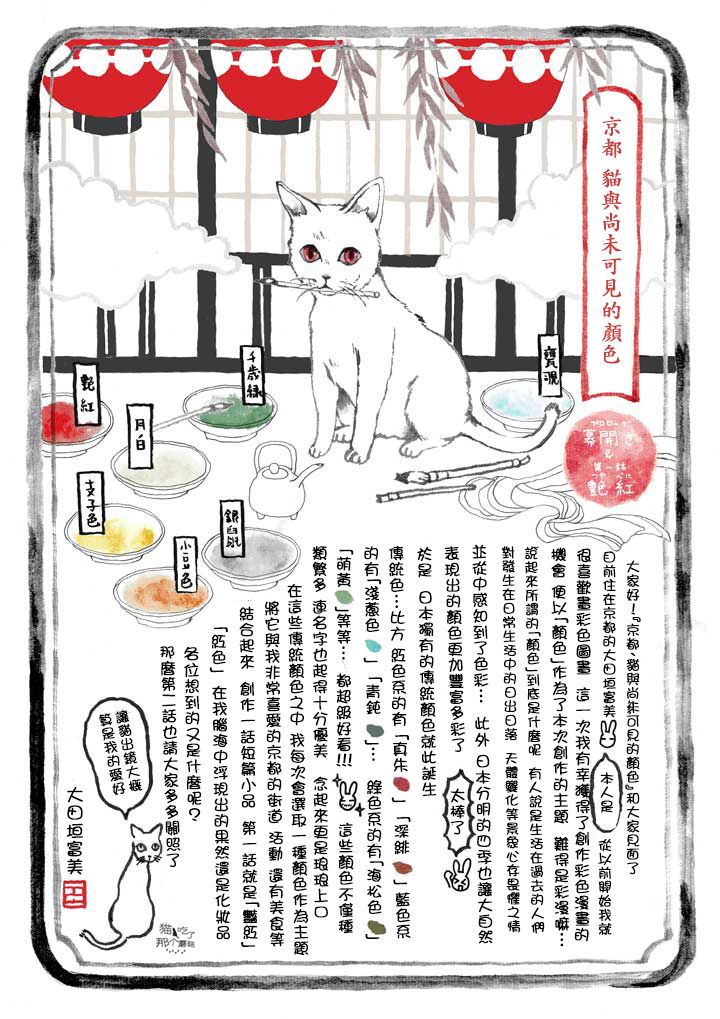 京都 貓與尚未可見的顏色
プロローグ
幕開き
&
第一話
つやべに
艶紅
甕覗
千歳緑
艶紅
月白
支子色
銀鼠
小豆色
大家好!『京都、貓與尚未可見的顏色』和大家見面了
目前住在京都的大田垣富美 本人是 從以前開始我就
很喜歡畫彩色圖畫 這一次我有幸獲得了創作彩色漫畫的
機會 便以「顏色」作為了本次創作的主題 難得是彩漫嘛…
說起來所謂的「顏色」到底是什麼呢 有人說是生活在過去的人們
對發生在日常生活中的日出日落 天體變化等景象心存畏懼之情
並從中感知到了色彩… 此外 日本分明的四季也讓大自然
表現出的顏色更加豐富多彩了 太棒了
於是 日本獨有的傳統顏色就此誕生
傳統色…比方 紅色系的有「真朱」「深緋」藍色系
的有「淺蔥色」「青鈍」… 綠色系的有「海松色」
「萌黃」等等… 都超級好看!!! 這些顏色不僅種
類繁多 連名字也起得十分優美 念起來更是琅琅上口
在這些傳統顏色之中 我每次會選取一種顏色作為主題
將它與我非常喜愛的京都的街道 活動 還有美食等
結合起來 創作一話短篇小品 第一話就是「豔紅」
「紅色」 在我腦海中浮現出的果然還是化妝品
各位想到的又是什麼呢?
那麼第二話也請大家多多關照了
讓貓出鏡大概
算是我的愛好
大田垣富美
貓吃了
那个蘑菇